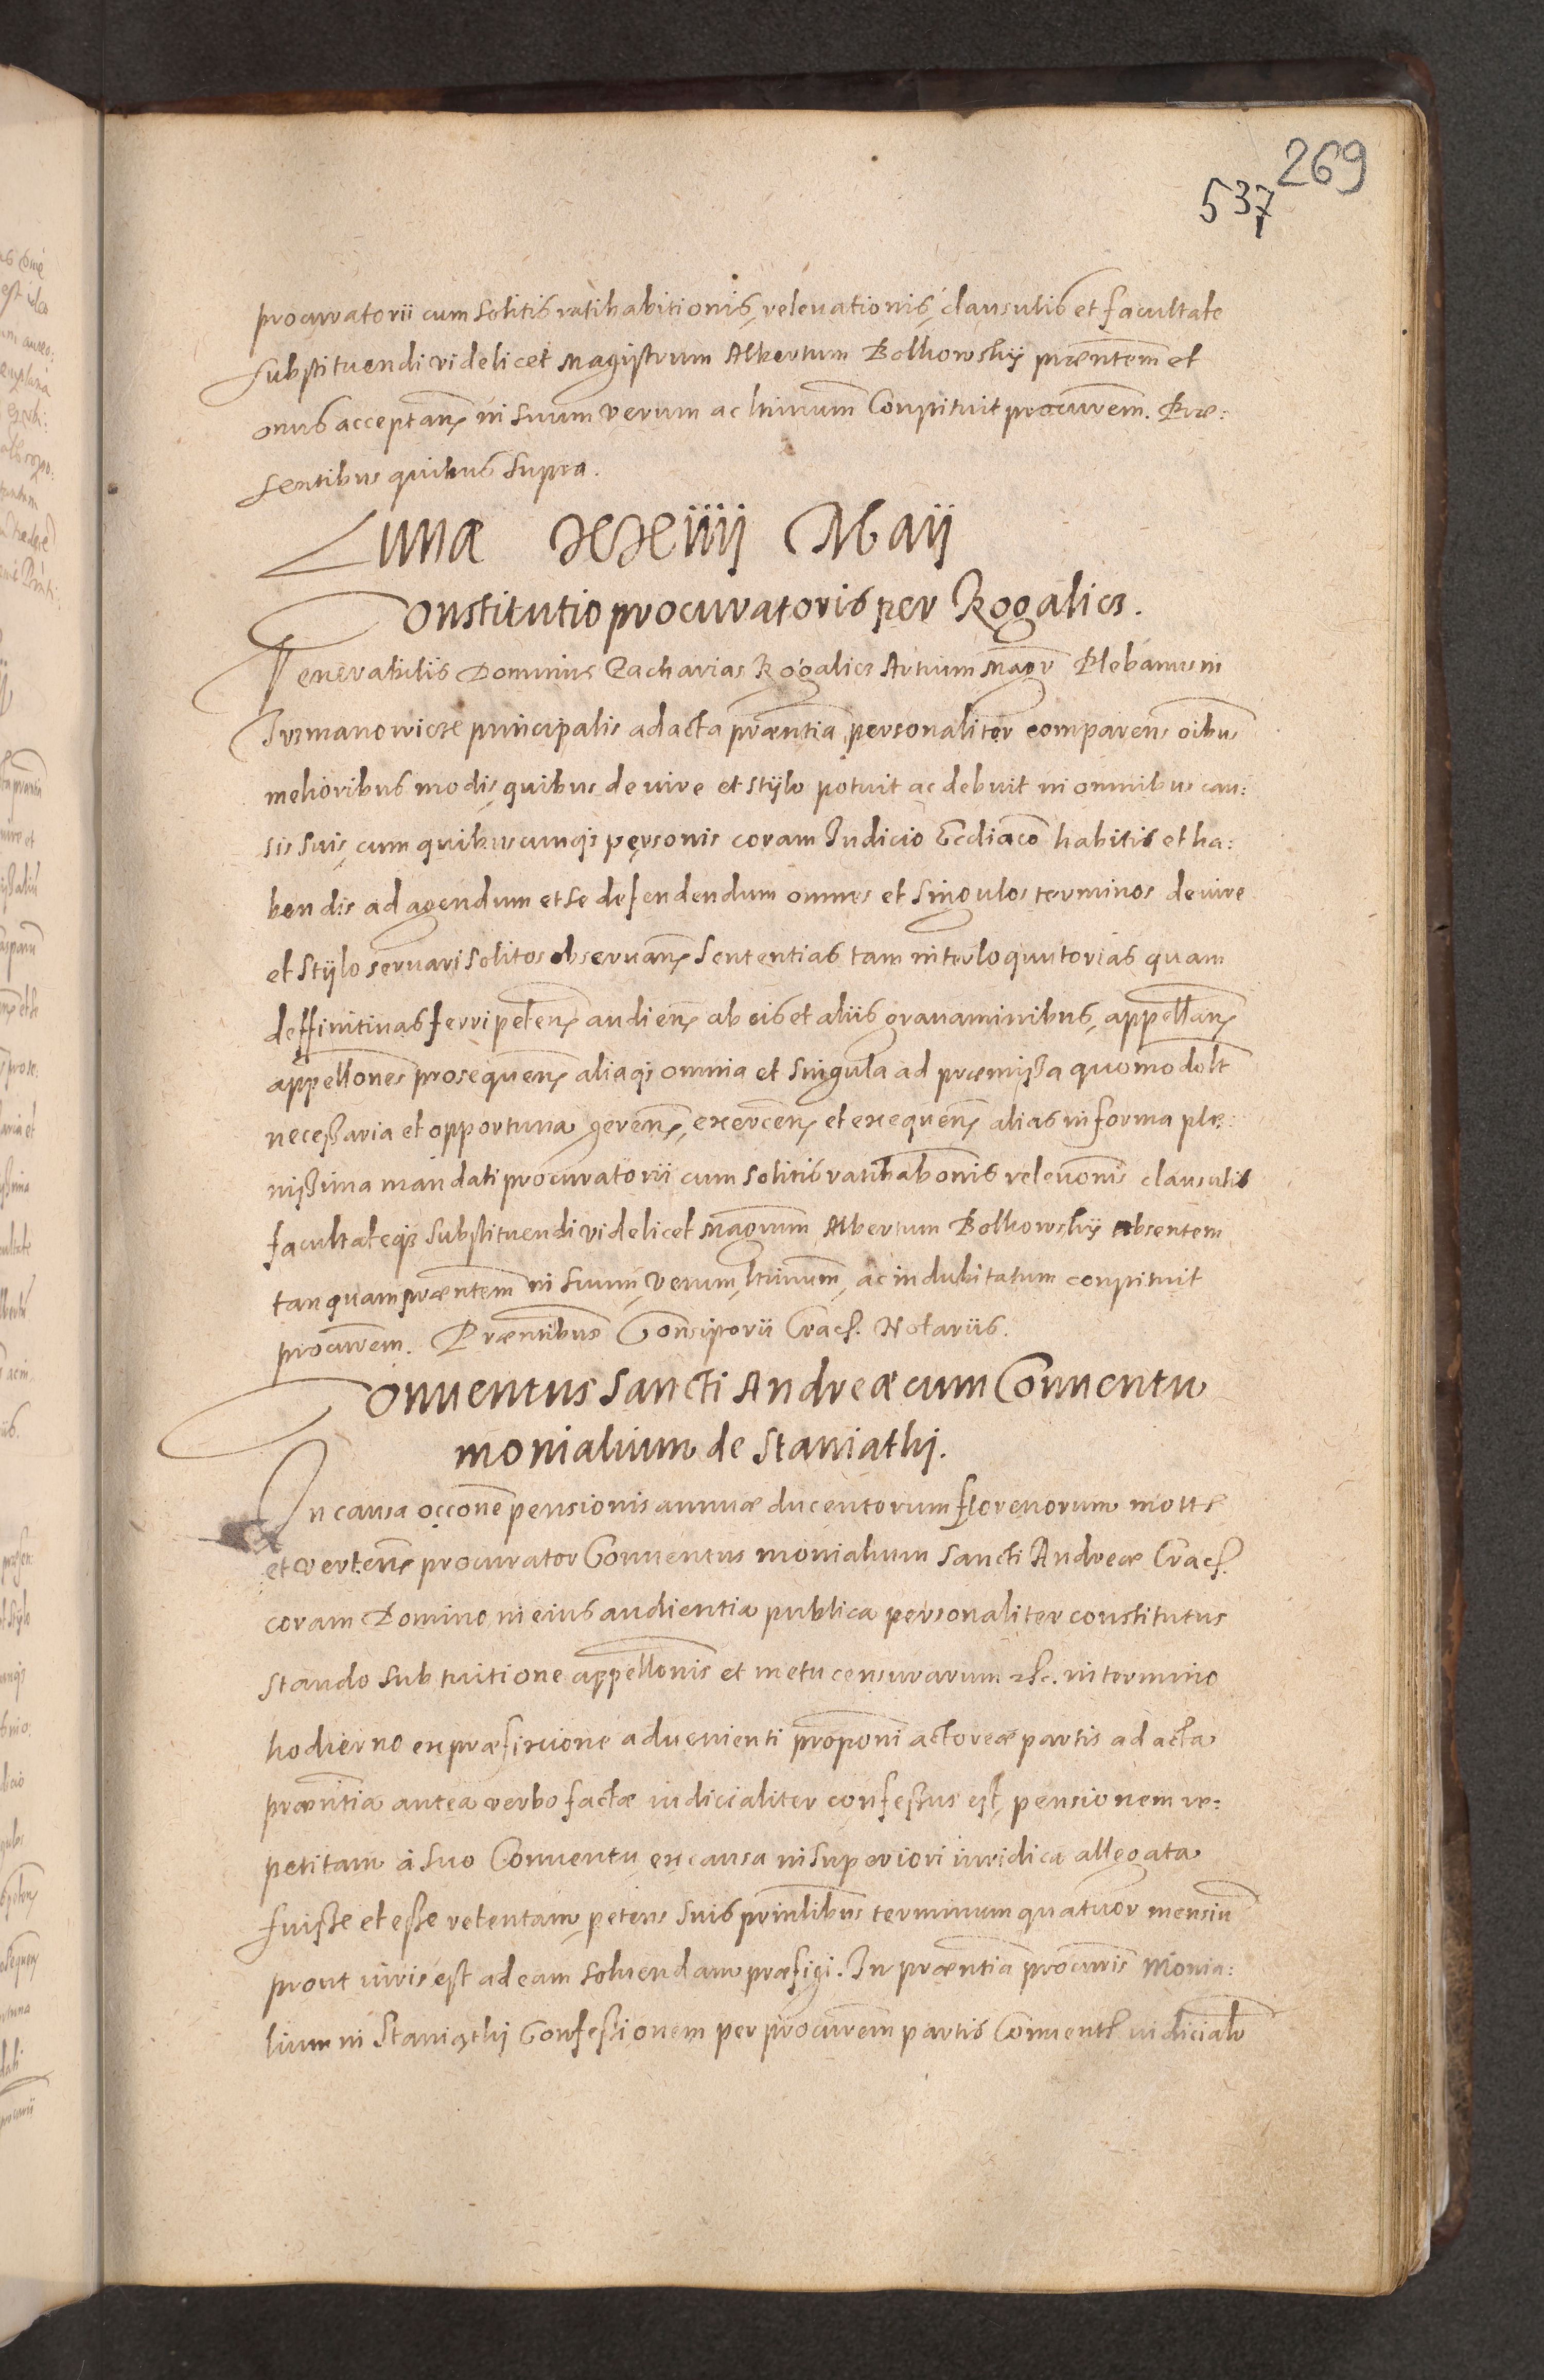 269
537
procuratorii cum solitis ratihabitionis, relevationis, clausulis et facultate
substituendi videlicet Magistrum Albertum Bolkowsky præntem et
onus acceptan in suum verum ac ltimum Constituit procurem. Præ:
sentibus quibus supra.
Lunæ xxiiii Maii
Constitutio procuratoris per Rogalicz.
Venerabilis Dominus Zacharias Rogalicz Artium Magr Plebanus in
Irzmanowicze principalis ad acta præntia personaliter comparens oibus
melioribus modis, quibus de iure et stylo potuit ac debuit in omnibus cau:
sis suis, cum quibuscunqs personis coram Iudicio habitis et ha:
bendis ad agendum et se defendendum omnes et singulos terminos de iure
et stylo servari solitos observan sententias tam interloquutorias quam
deffinitivas ferri peten audien ab eis et aliis gravaminibus, appellan
appellones prosequen aliaqs omnia et singula ad præmissa quomodolt
necessaria et opportuna geren, exercen et exequen alias in forma plæ:
nissima mandati procuratorii cum solitis ratihabonis relevonis clausulis
facultateqs substituendi videlicet Magrum Albertum Bolkowsky absentem
tanquam præntem in suum, verum, ltimum, ac indubitatum constituit
procurem. Præntibus Consistorii Crac. Notariis.
Conventus Sancti Andreæ cum Conventu
monialium de Staniathi.
In causa occone pensionis annuæ ducentorum florenorum mott
et verten procurator Conventus monialium Sancti Andreæ Crac.
coram Domino in eius audientia publica personaliter constitutus
stando sub tuitione appellonis et metu censurarum etc. in termino
hodierno ex præfixione advenienti proponi actoreæ partis ad acta
præntia antea verbo factæ iudicialiter confessus est, pensionem re:
petitam à suo Conventu ex causa in superiori iuridica allegata
fuisse et esse retentam petens suis prinlibus terminum quatuor mensiu
prout iuris est ad eam solvendam præfigi. In præntia procuris Monia:
lium in Staniathi Confessionem per procurem partis Convent iudicialr